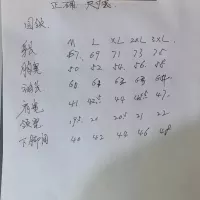 正确 尺寸表
圆领
M L XL 2XL 3XL
衣长 67 69 71 73 75
胸宽 50 52 54 56 58
袖长
肩宽 41 42.5 44 45.5 47
领宽 19.5 20 20.5 21 22
下脚阔 40 42 44 46 48